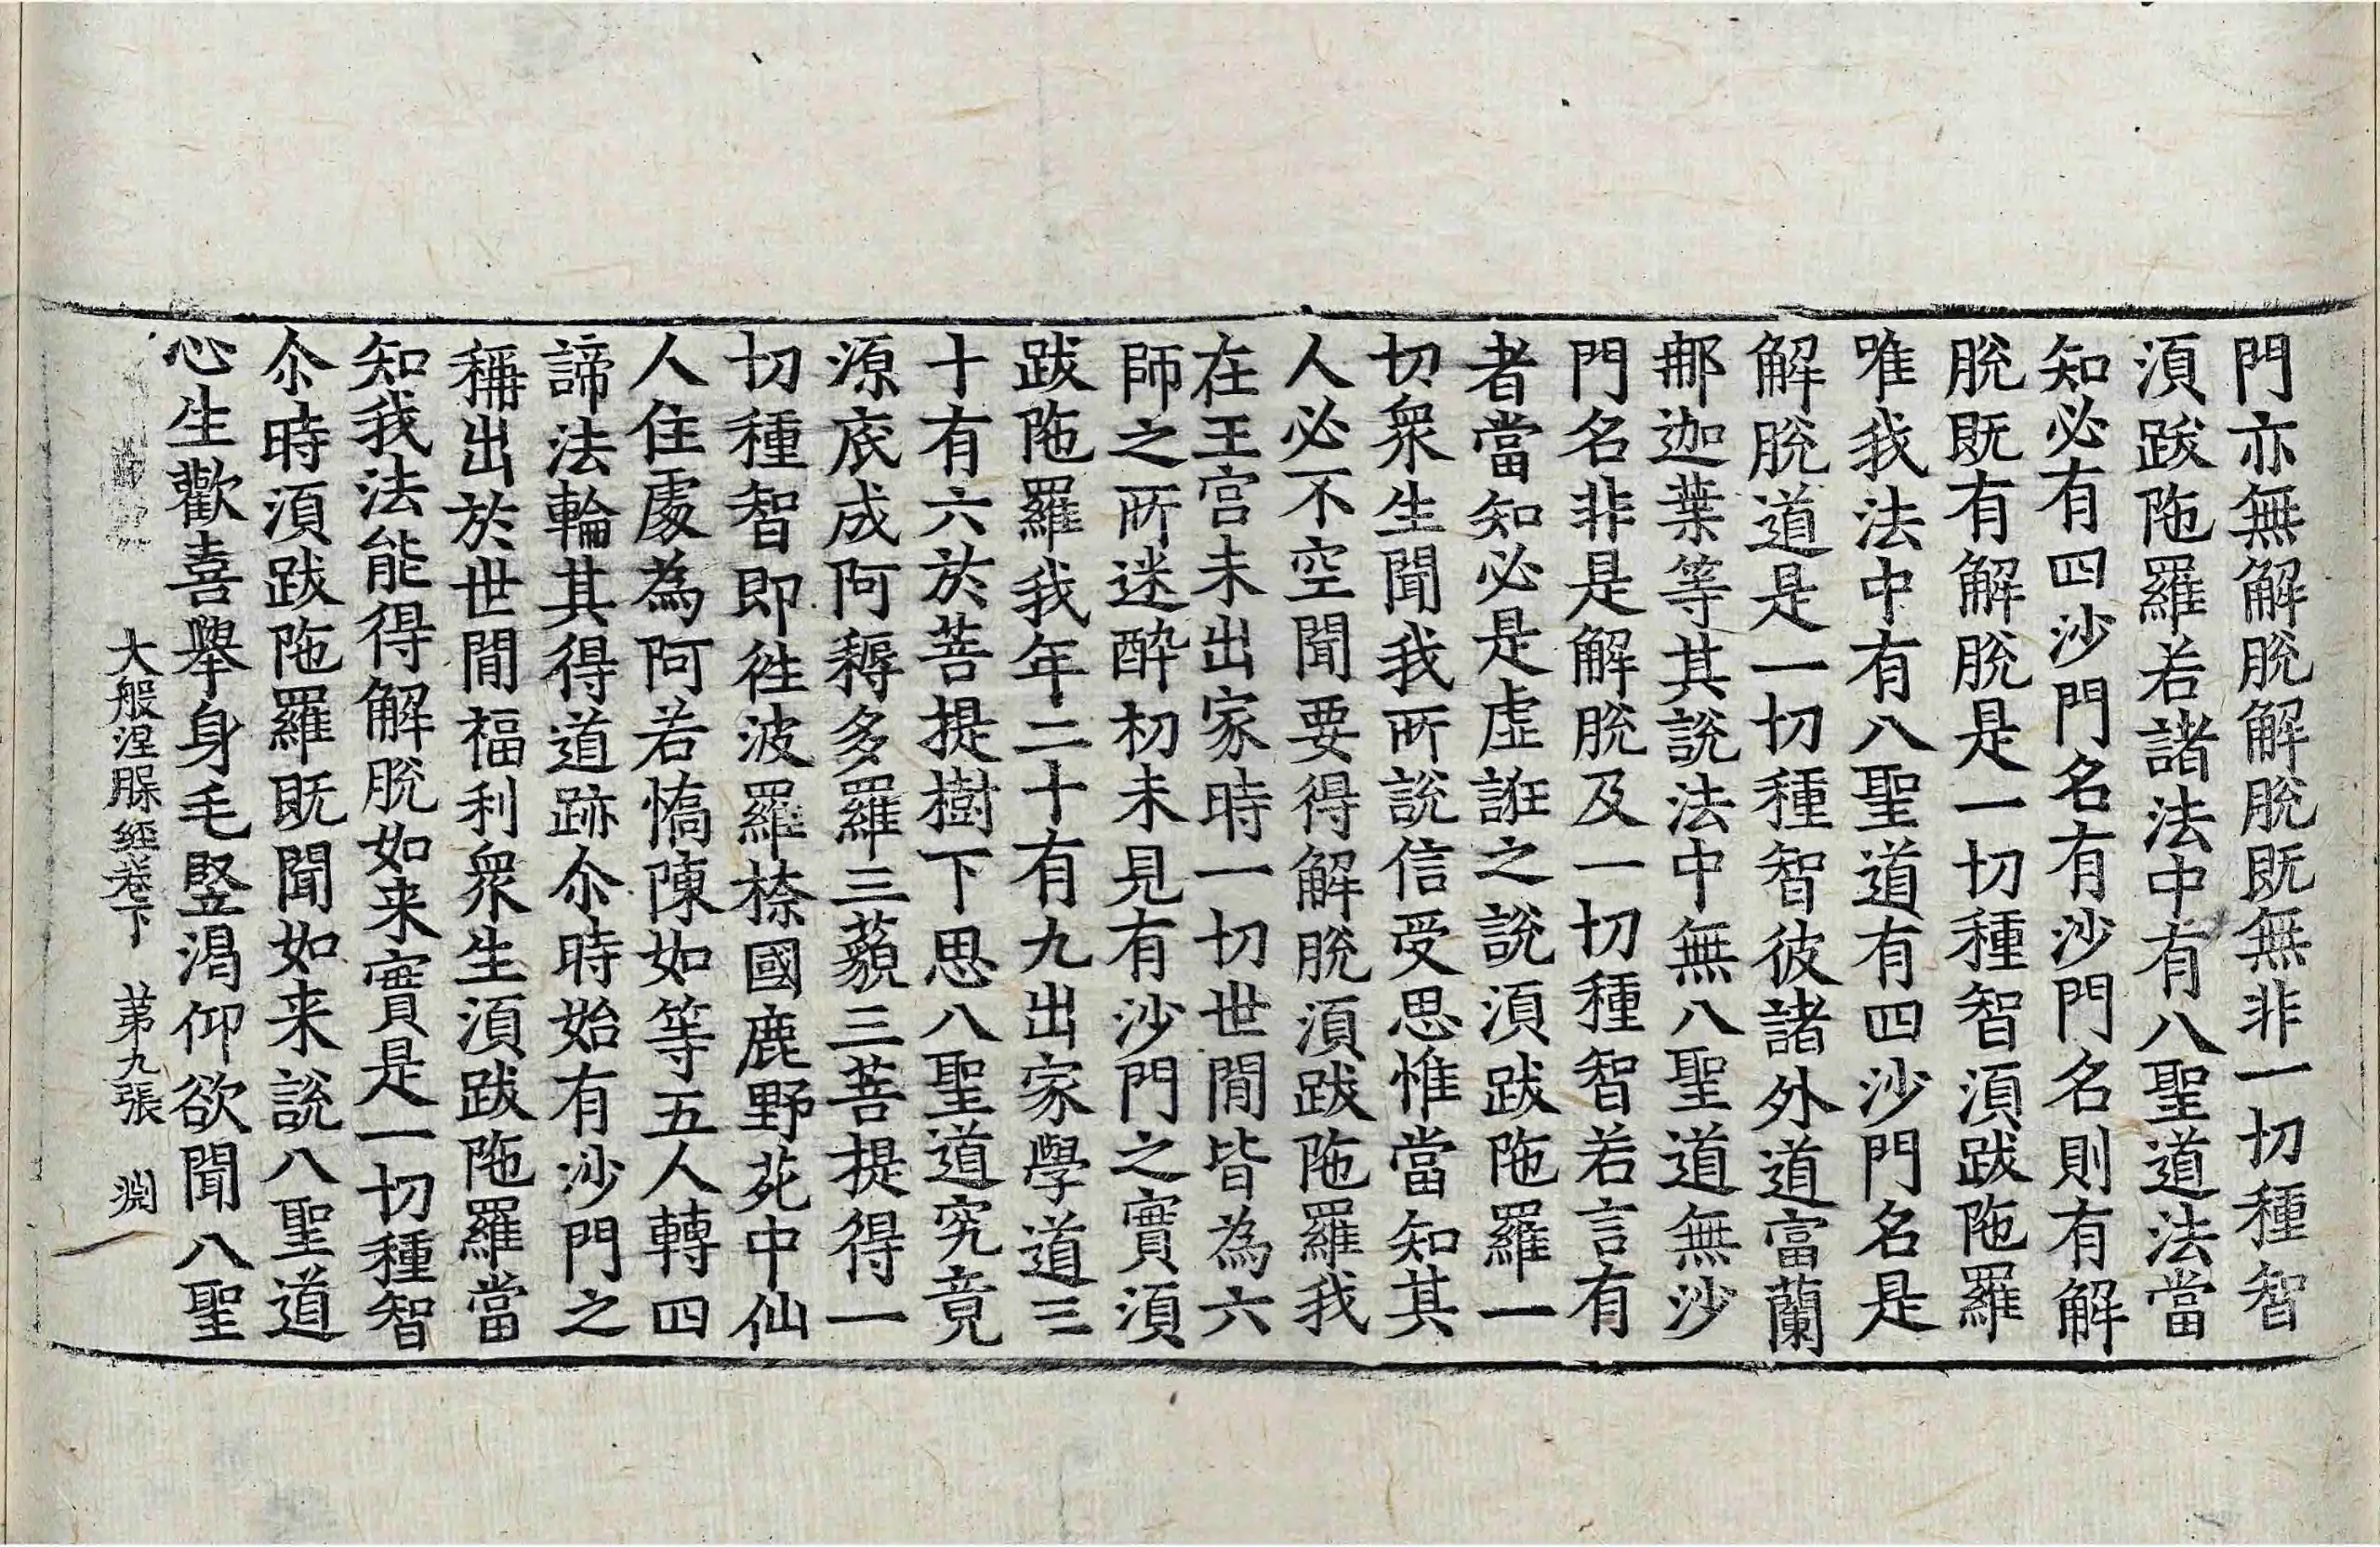 門亦無解脫解脫既無非一切種智
湏跋陁羅若諸法中有八聖道法當
知必有四沙門名有沙門名則有解
脫既有解脫是一切種智湏跋陁羅
唯我法中有八聖道有四沙門名是
解脫道是一切種智彼諸外道富蘭
那迦葉等其說法中無八聖道無沙
門名非是解脫及一切種智若言有
者當知必是虛誑之說湏跋陁羅一
切衆生聞我所說信受思惟當知其
人必不空聞要得解脫湏跋陁羅我
在王宮未出家時一切世閒皆為六
師之所迷醉初未見有沙門之實湏
跋陁羅我年二十有九出家學道三
十有六於菩提樹下思八聖道究竟
源底成阿耨多羅三藐三菩提得一
切種智即徃波羅㮈國鹿野苑中仙
人住處為阿若憍陳如等五人轉四
諦法輪其得道跡尒時始有沙門之
稱出於世閒福利衆生湏跋陁羅當
知我法能得解脫如来實是一切種智
尒時湏跋陁羅既聞如来說八聖道
心生歡喜舉身毛竪渴仰欲聞八聖
大般涅槃經卷下 苐九張 淵